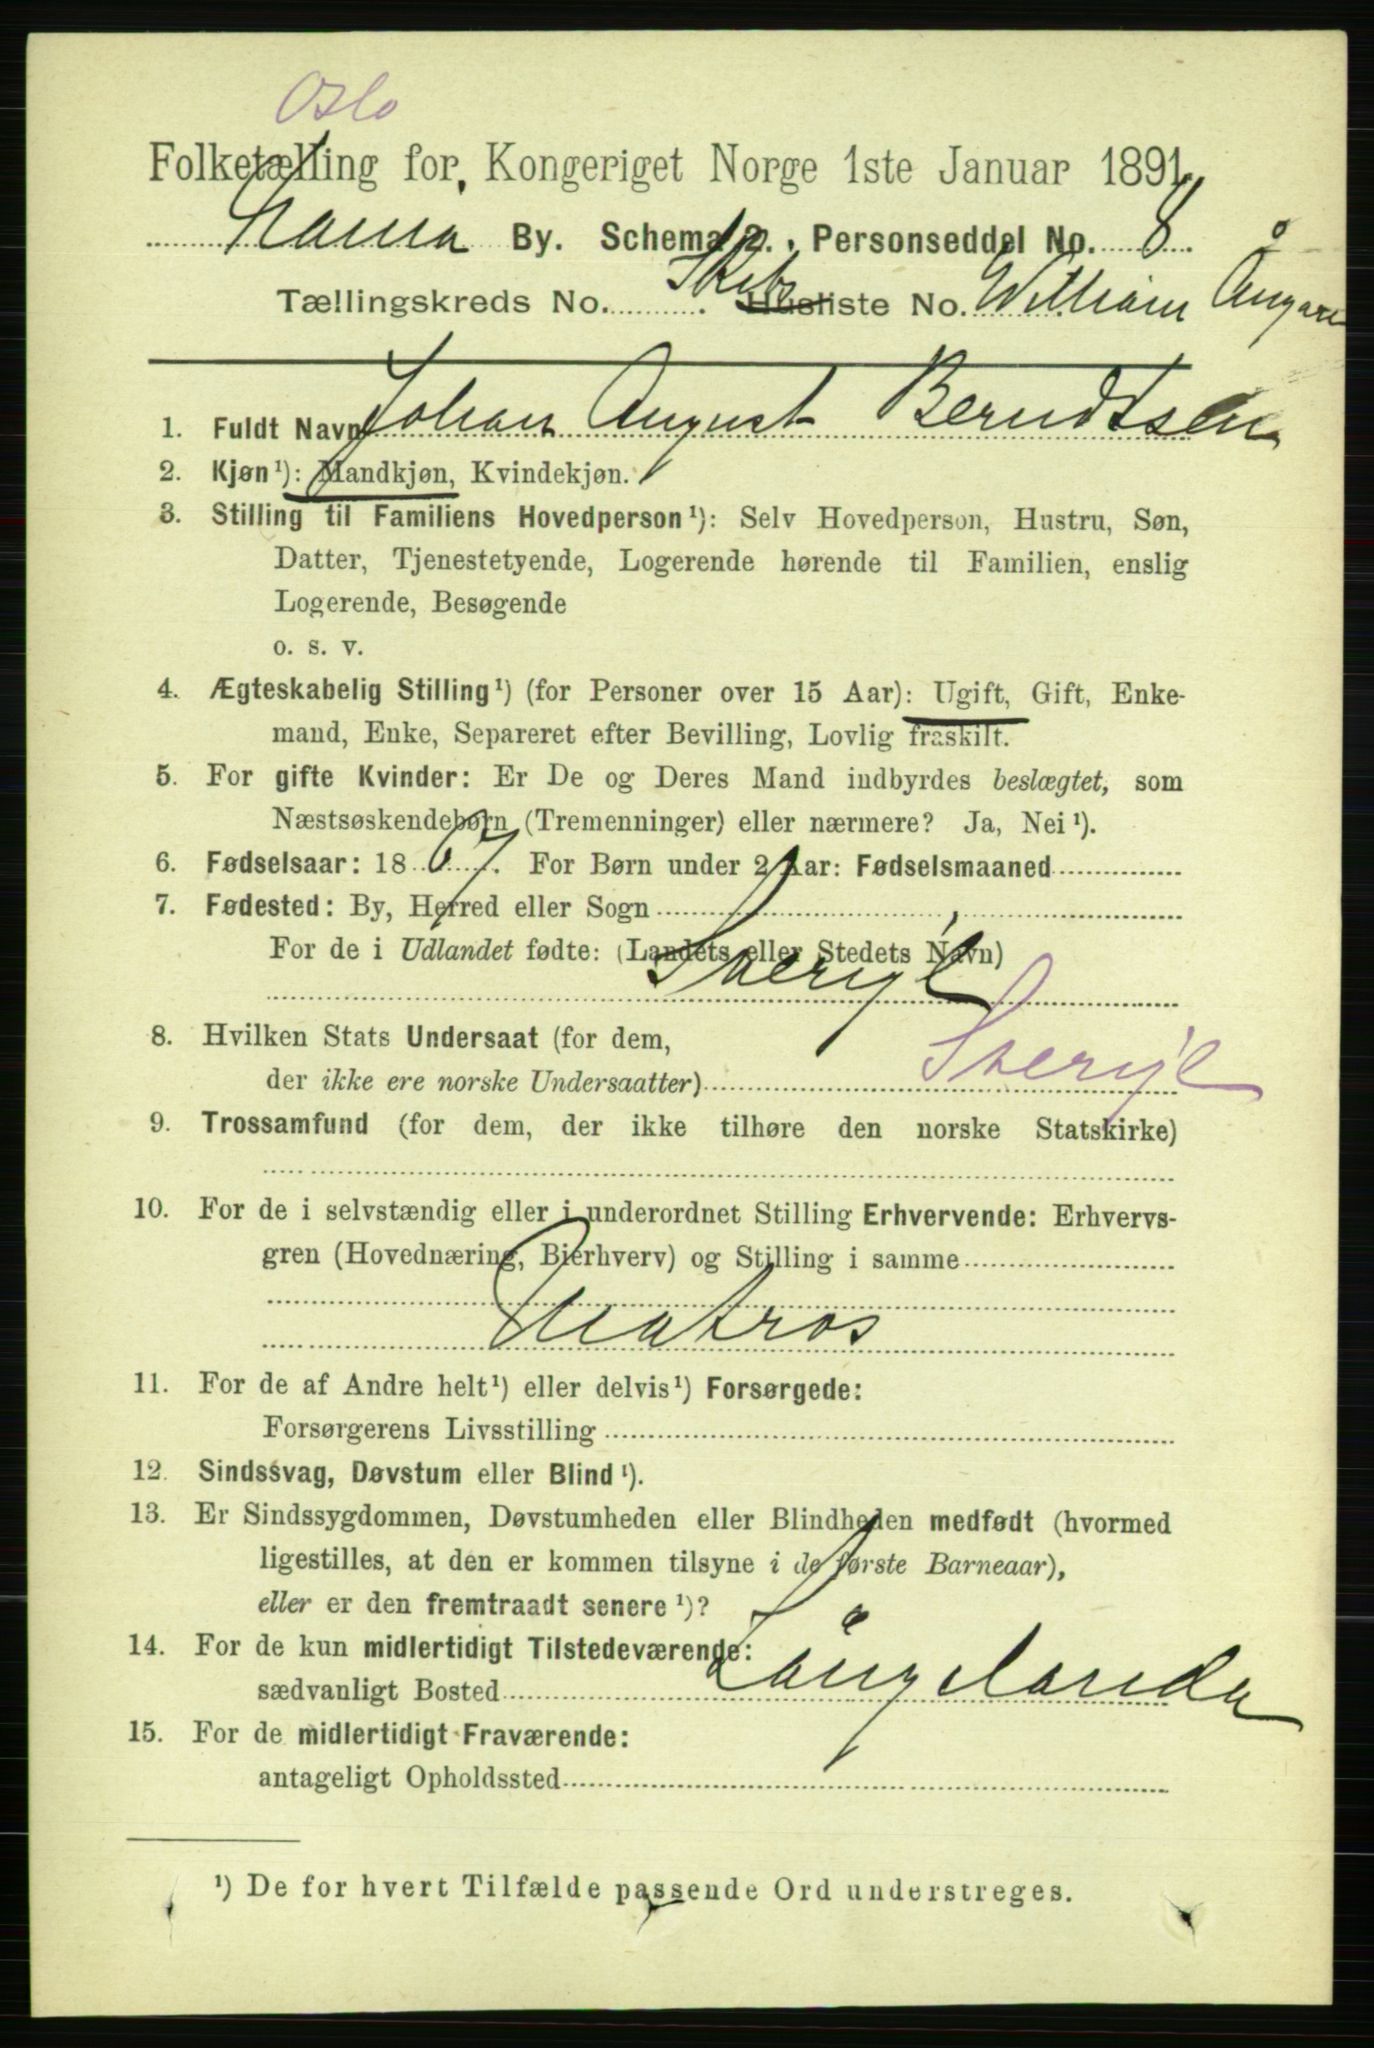 Oslo
Folketælling for Kongeriget Norge 1ste Januar 1891.
By. Schema 2. Personseddel No. 8.
Tællingskreds No. . Skibsliste No. William Ångare
1. Fuldt Navn Johan August Berndtsen
2. Kjøn¹): Mandkjøn, Kvindekjøn.
3. Stilling til Familiens Hovedperson¹): Selv Hovedperson, Hustru, Søn,
Datter, Tjenestetyende, Logerende hørende til Familien, enslig
Logerende, Besøgende
o. s. v.
4. Ægteskabelig Stilling¹) (for Personer over 15 Aar): Ugift, Gift, Enke-
mand, Enke, Separeret efter Bevilling, Lovlig fraskilt.
5. For gifte Kvinder: Er De og Deres Mand indbyrdes beslægtet, som
Næstsøskendebørn (Tremenninger) eller nærmere? Ja, Nei¹).
6. Fødselsaar: 1867. For Børn under 2 Aar: Fødselsmaaned
7. Fødested: By, Herred eller Sogn
For de i Udlandet fødte: (Landets eller Stedets Navn)
Sverige
8. Hvilken Stats Undersaat (for dem,
der ikke ere norske Undersaatter) Sverige
9. Trossamfund (for dem, der ikke tilhøre den norske Statskirke)
10. For de i selvstændig eller i underordnet Stilling Erhvervende: Erhvervs-
gren (Hovednæring, Bierhverv) og Stilling i samme
Matros
11. For de af Andre helt¹) eller delvis¹) Forsørgede:
Forsørgerens Livsstilling
12. Sindssvag, Døvstum eller Blind¹).
13. Er Sindssygdommen, Døvstumheden eller Blindheden medfødt (hvormed
ligestilles, at den er kommen tilsyne i de første Barneaar),
eller er den fremtraadt senere¹)?
14. For de kun midlertidigt Tilstedeværende:
sædvanligt Bosted Långelanda
15. For de midlertidigt Fraværende:
antageligt Opholdssted
¹) De for hvert Tilfælde passende Ord understreges.